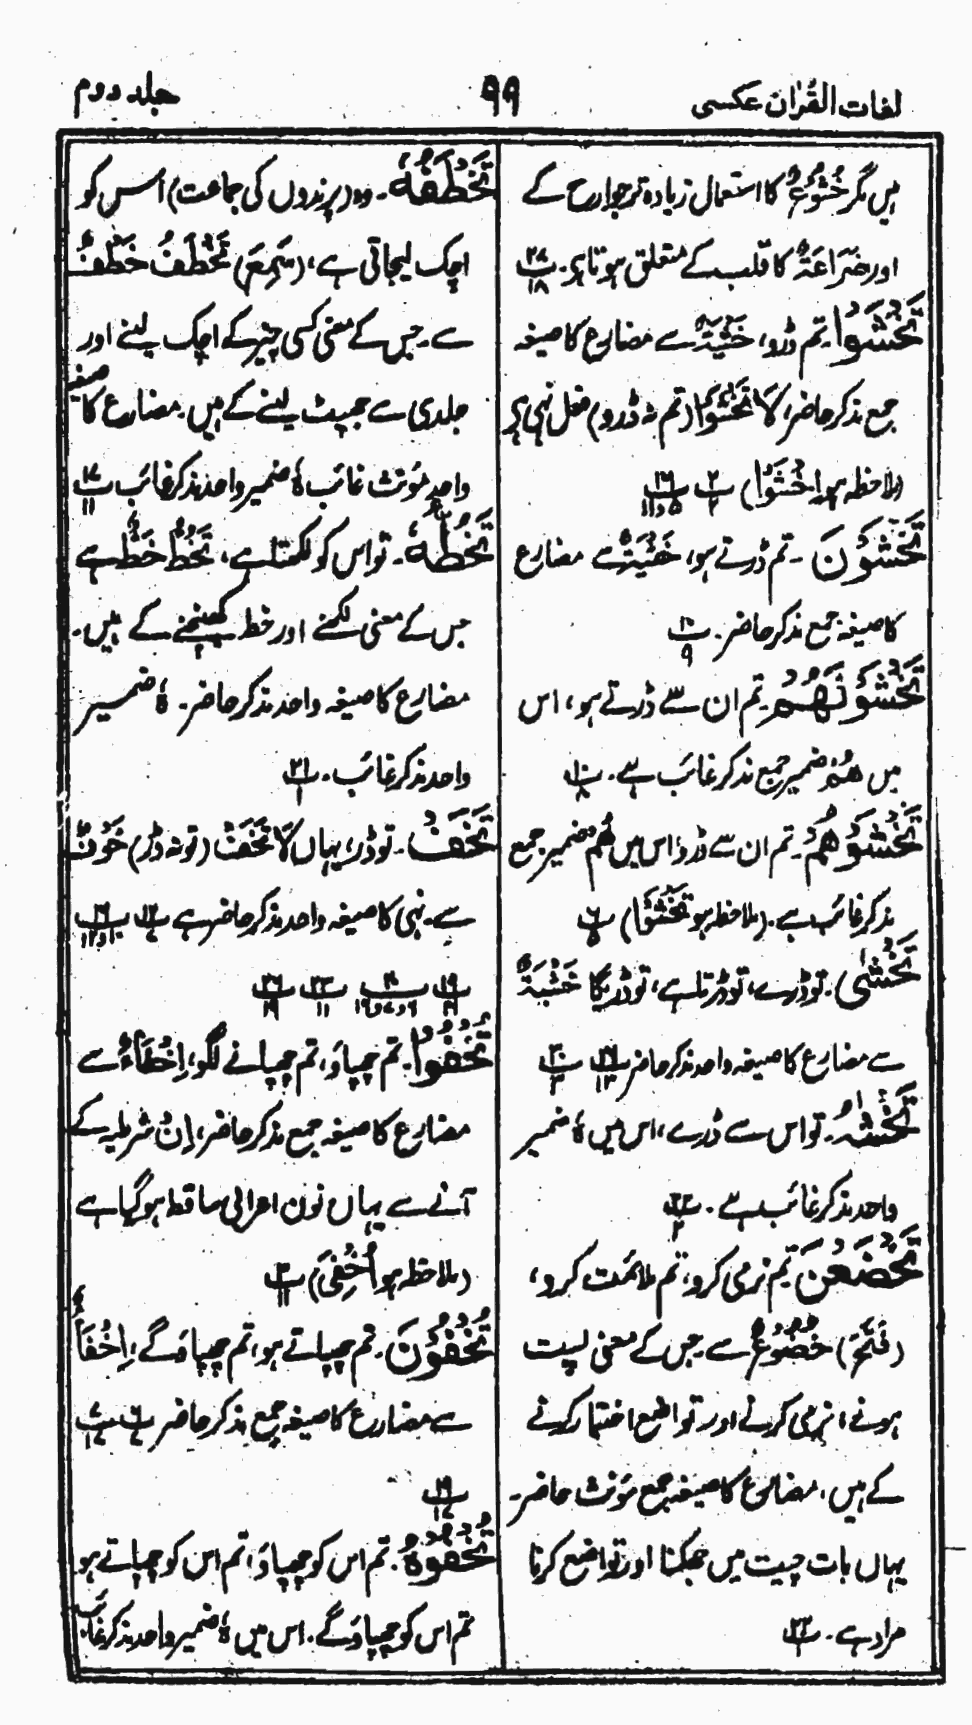 لغات القرآن عکسی
۹۹
جلد دوم
ہیں مگر خُشُوْعٌ کا استعمال زیادہ تر جوارح کے
اور ضَرَاعَۃٌ کا قلب کے متعلق ہوتا ہے۔ ۲۷/۱۸
تَخْشَوْا۔ تم ڈرو، خَشْیَۃٌ سے مضارع کا صیغہ
جمع مذکر حاضر، لَا تَخْشَوْا (تم نہ ڈرو) فعل نہی ہے
(ملاحظہ ہو اِخْشَوْا) ۲/۲ ۲۶/۵ و ۱۱
تَخْشَوْنَ۔ تم ڈرتے ہو، خَشْیَۃٌ سے مضارع
کا صیغہ جمع مذکر حاضر۔ ۱۰/۹
تَخْشَوْنَہُمْ۔ تم ان سے ڈرتے ہو، اس
میں ھُمْ ضمیر جمع مذکر غائب ہے۔ ۱۰/۸
تَخْشَوْھُمْ۔ تم ان سے ڈرو، اس میں ھُمْ ضمیر جمع
مذکر غائب ہے۔ (ملاحظہ ہو تَخْشَوْا) ۶/۵
تَخْشٰی۔ تو ڈرے، تو ڈرتا ہے، تو ڈریگا خَشْیَۃٌ
سے مضارع کا صیغہ واحد مذکر حاضر ۱۶/۱۳ ۳۰/۳
تَخْشٰہُ۔ تو اس سے ڈرے، اس میں ہٗ ضمیر
واحد مذکر غائب ہے۔ ۲۲/۲
تَخْضَعْنَ تم نرمی کرو، تم ملائمت کرو،
(فَتَحَ) خُضُوْعٌ سے جس کے معنی پست
ہونے، نرمی کرنے اور تواضع اختیار کرنے
کے ہیں، مضارع کا صیغہ جمع مؤنث حاضر۔
یہاں بات چیت میں جھکنا اور تواضع کرنا
مراد ہے۔ ۲۲/۱
تَخْطَفُہُ۔ وہ (پرندوں کی جماعت) اس کو
اچک لیجاتی ہے، (سَمِعَ) تَخْطَفُ خَطْفٌ
سے۔ جس کے معنی کسی چیز کے اچک لینے اور
جلدی سے جھپٹ لینے کے ہیں۔ مضارع کا صیغہ
واحد مؤنث غائب ہٗ ضمیر واحد مذکر غائب ۱۷/۱۱
تَخُطُّہٗ۔ تو اس کو لکھتا ہے، تَخُطُّ خَطٌّ سے
جس کے معنی لکھنے اور خط کھینچنے کے ہیں۔
مضارع کا صیغہ واحد مذکر حاضر۔ ہٗ ضمیر
واحد مذکر غائب۔ ۲۱/۱
تَخَفْ۔ تو ڈر، یہاں لَا تَخَفْ (تو نہ ڈر) خَوْفٌ
سے۔ نہی کا صیغہ واحد مذکر حاضر ہے ۱۲/۷ ۱۶/۱۰ و ۱۲
تُخْفُوْا۔ تم چھپاؤ، تم چھپانے لگو، اِخْفَاءٌ سے
مضارع کا صیغہ جمع مذکر حاضر، اِنْ شرطیہ کے
آنے سے یہاں نون اعرابی ساقط ہوگیا ہے
(ملاحظہ ہو اُخْفِیَ) ۳/۱۱
تُخْفُوْنَ۔ تم چھپاتے ہو، تم چھپاؤ گے، اِخْفَاءٌ
سے مضارع کا صیغہ جمع مذکر حاضر ۶/۷ ۷/۱۷
۱۹/۱۷
تُخْفُوْہُ۔ تم اس کو چھپاؤ، تم اس کو چھپاتے ہو
تم اس کو چھپاؤ گے۔ اس میں ہٗ ضمیر واحد مذکر غائب